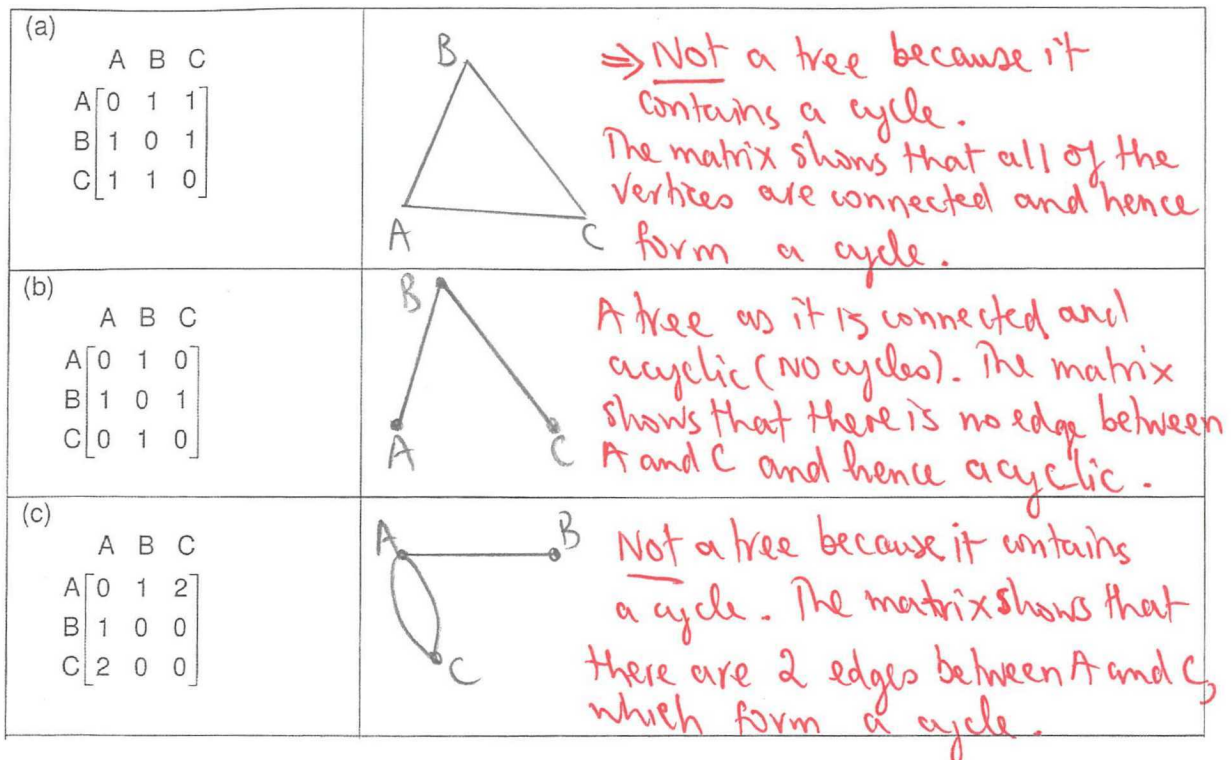 (a)
A B C
A 0 1 1
B 1 0 1
C 1 1 0
B
A
C
⇒ Not a tree because it
contains a cycle.
The matrix shows that all of the
vertices are connected and hence
form a cycle.
(b)
A B C
A 0 1 0
B 1 0 1
C 0 1 0
B
A
C
A tree as it is connected and
acyclic (NO cycles). The matrix
shows that there is no edge between
A and C and hence acyclic.
(c)
A B C
A 0 1 2
B 1 0 0
C 2 0 0
A
B
C
Not a tree because it contains
a cycle. The matrix shows that
there are 2 edges between A and C,
which form a cycle.